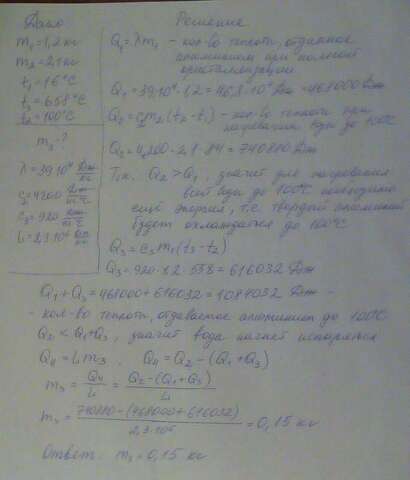 Дано
m₁=1,2 кг
m₂=2,1 кг
t₁=16°C
t₃=658°C
t₂=100°C
m₃-?
λ=39·10⁴ Дж/кг
c₂=4200 Дж/кг°C
c₃=920 Дж/кг°C
L=2,3·10⁶ Дж/кг
Решение
Q₁=λm₁ - кол-во теплоты, отданное
алюминием при полной
кристаллизации
Q₁=39·10⁴·1,2=46,8·10⁴ Дж=468000 Дж
Q₂=c₂m₂(t₂-t₁) - кол-во теплоты при
нагревании воды до 100°C
Q₂=4200·2,1·84=740880 Дж
Т.к. Q₂>Q₁, значит для нагревания
всей воды до 100°C необходима
ещё энергия, т.е. твердый алюминий
будет охлаждаться до 100°C
Q₃=c₃m₁(t₃-t₂)
Q₃=920·1,2·558=616032 Дж
Q₁+Q₃=468000+616032=1084032 Дж -
- кол-во теплоты, отдаваемое алюминием до 100°C
Q₂<Q₁+Q₃, значит вода начнет испаряться
Q₄=Lm₃, Q₄=Q₂-(Q₁+Q₃)
m₃=Q₄/L=Q₂-(Q₁+Q₃)/L
m₃=740880-(468000+616032)/2,3·10⁶=0,15 кг
Ответ: m₃=0,15 кг